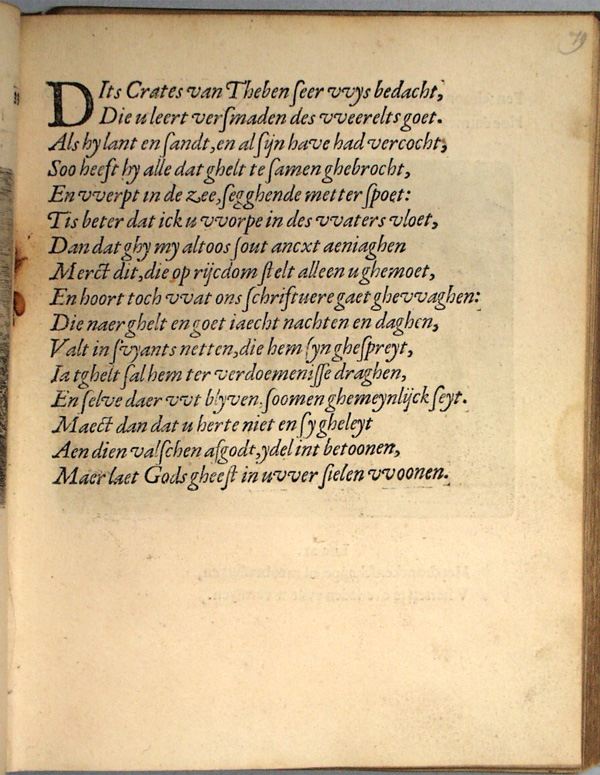 79
DIts Crates van Theben seer vvys bedacht,
Die u leert versmaden des vveerelts goet.
Als hy lant en sandt, en al sijn have had vercocht,
Soo heeft hy alle dat ghelt te samen ghebrocht,
En vverpt in de zee, segghende metter spoet:
Tis beter dat ick u vvorpe in des vvaters vloet,
Dan dat ghy my altoos sout ancxt aeniaghen
Merct dit, die op rijcdom stelt alleen u ghemoet,
En hoort toch vvat ons schriftuere gaet ghevvaghen:
Die naer ghelt en goet iaecht nachten en daghen,
Valt in s'vyants netten, die hem syn ghespreyt,
Ia tghelt sal hem ter verdoemenisse draghen,
En selve daer vvt blyven, soomen ghemeynlijck seyt.
Maect dan dat u herte niet en sy gheleyt
Aen dien valschen afgodt, ydel int betoonen,
Maer laet Gods gheest in uvver sielen vvoonen.